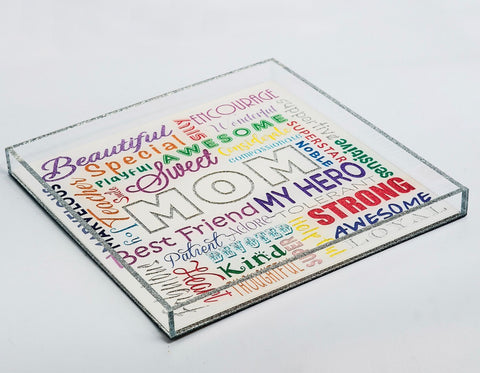 ENCOURAGE
Beautiful
SILLY
Wonderful
supportive
Special
AWESOME
Playful
Considerate
SUPERSTAR
Sweet
COMPASSIONATE
NOBLE
sensitive
Teacher
Safe
MOM
MARVELOUS
Joy
MY HERO
TOLERANT
STRONG
Best Friend
Adore
AWESOME
Patient
DEVOTED
LOYAL
Helpful
SUPER
Kind
Angel
THOUGHTFUL